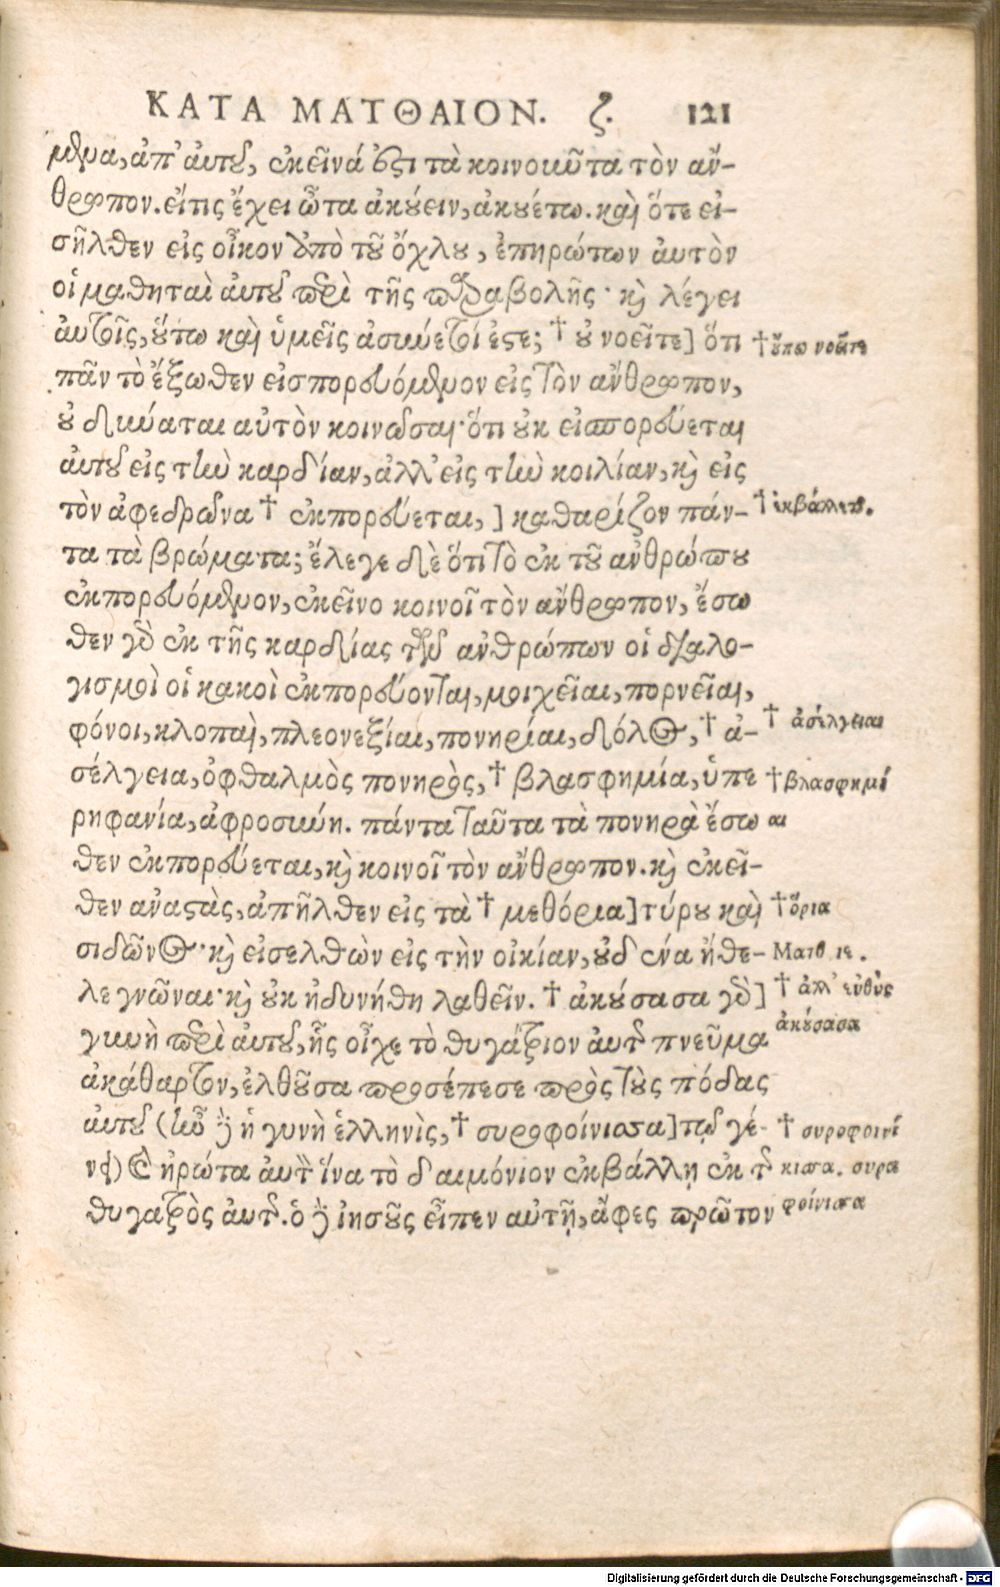 ΚΑΤΑ ΜΑΤΘΑΙΟΝ. ζ. 121
μενα, ἀπ' ἀυτοῦ, ἐκεῖνά ἐστι τὰ κοινοῦντα τὸν ἄν-
θρωπον. εἴτις ἔχει ὦτα ἀκούειν, ἀκουέτω. καὶ ὅτε εἰ-
σῆλθεν εἰς οἶκον ἀπὸ τοῦ ὄχλου, ἐπηρώτων ἀυτὸν
οἱ μαθηταὶ ἀυτοῦ περὶ τῆς παραβολῆς· καὶ λέγει
ἀυτοῖς, οὕτω καὶ ὑμεῖς ἀσύνετοί ἐστε; † οὐ νοεῖτε] ὅτι
†οὔπω νοεῖτε
πᾶν τὸ ἔξωθεν εἰσπορευόμενον εἰς τὸν ἄνθρωπον,
οὐ δύναται αὐτὸν κοινῶσαι· ὅτι οὐκ εἰσπορεύεται
ἀυτοῦ εἰς τὴν καρδίαν, ἀλλ' εἰς τὴν κοιλίαν, καὶ εἰς
τὸν ἀφεδρῶνα † ἐκπορεύεται, ] καθαρίζον πάν-
†ἐκβάλλεται.
τα τὰ βρώματα; ἔλεγε δὲ ὅτι τὸ ἐκ τοῦ ἀνθρώπου
ἐκπορευόμενον, ἐκεῖνο κοινοῖ τὸν ἄνθρωπον, ἔσω
θεν γὰρ ἐκ τῆς καρδίας τῶν ἀνθρώπων οἱ διαλο-
γισμοὶ οἱ κακοὶ ἐκπορεύονται, μοιχεῖαι, πορνεῖαι,
φόνοι, κλοπαὶ, πλεονεξίαι, πονηρίαι, δόλος, † ἀ-
† ἀσέλγειαι
σέλγεια, ὀφθαλμὸς πονηρὸς, † βλασφημία, ὑπε
†βλασφημί
ρηφανία, ἀφροσύνη. πάντα ταῦτα τὰ πονηρὰ ἔσω
αι
θεν ἐκπορεύεται, καὶ κοινοῖ τὸν ἄνθρωπον. καὶ ἐκεῖ-
θεν ἀναστὰς, ἀπῆλθεν εἰς τὰ † μεθόρια] τύρου καὶ
†ὅρια
σιδῶνος· καὶ εἰσελθὼν εἰς τὴν οἰκίαν, οὐδένα ἤθε-
Ματθ ιε.
λε γνῶναι· καὶ οὐκ ἠδυνήθη λαθεῖν. † ἀκούσασα γὰρ]
† ἀλλ' εὐθὺς
γυνὴ περὶ ἀυτοῦ, ἧς εἶχε τὸ θυγάτριον ἀυτῆς πνεῦμα
ἀκούσασα
ἀκάθαρτον, ἐλθοῦσα προσέπεσε πρὸς τοὺς πόδας
ἀυτοῦ (ἦν δὲ ἡ γυνὴ ἑλληνὶς, † συροφοίνισσα] τῷ γέ-
† συροφοινί
νει) καὶ ἠρώτα ἀυτὸν ἵνα τὸ δαιμόνιον ἐκβάλλῃ ἐκ τῆς
κισσα. συρα
θυγατρὸς ἀυτῆς. ὁ δὲ ἰησοῦς εἶπεν αὐτῇ, ἄφες πρῶτον
φοίνισσα
Digitalisierung gefördert durch die Deutsche Forschungsgemeinschaft - DFG